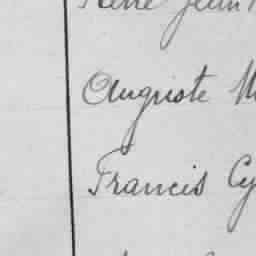 René Jean
Auguste
Francis Cy